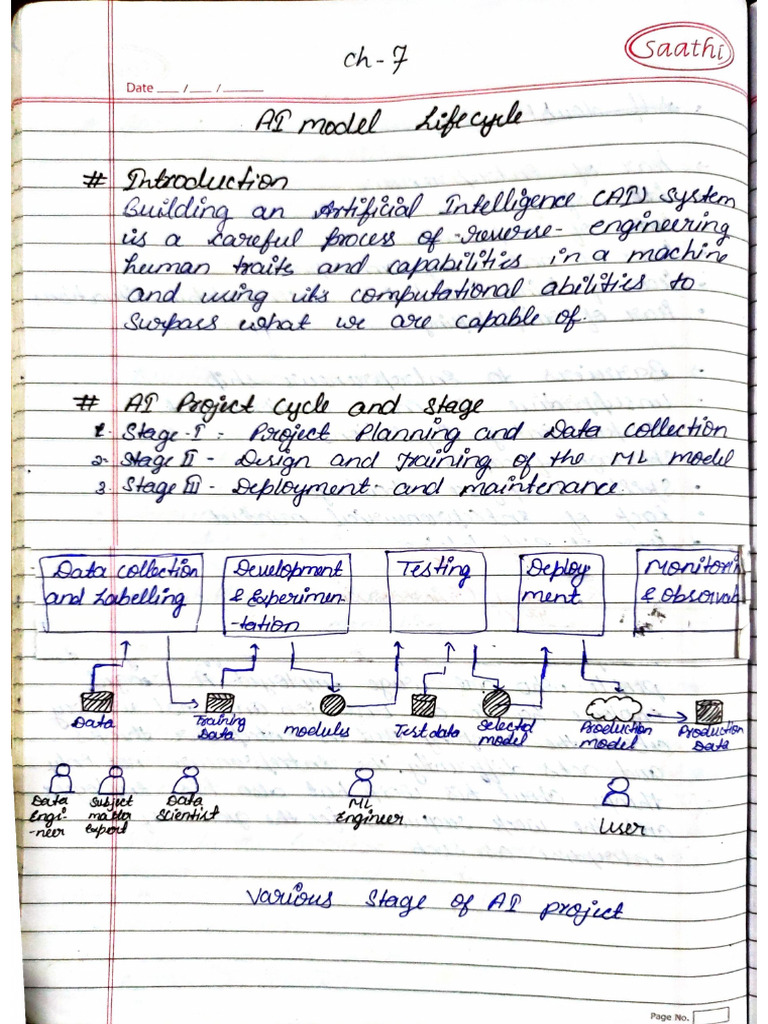 Saathi
ch-7
Date ___ / ___ / ______
AI model Lifecycle
# Introduction
Building an Artificial Intelligence (AI) system
is a careful process of reverse- engineering
human traits and capabilities in a machine
and using its computational abilities to
surpass what we are capable of.
# AI Project Cycle and Stage
1. Stage-I - Project Planning and Data collection
2. Stage II - Design and Training of the ML model
3. Stage III - Deployment and maintenance.
Data collection
and Labelling
Development
& Experimen-
-tation
Testing
Deploy
ment
Monitorin
& Observab
Data
Training
Data
modules
Test data
Selected
model
Production
model
Production
Data
Data
Engi-
-neer
Subject
matter
Expert
Data
Scientist
ML
Engineer
User
Various Stage of AI project
Page No.